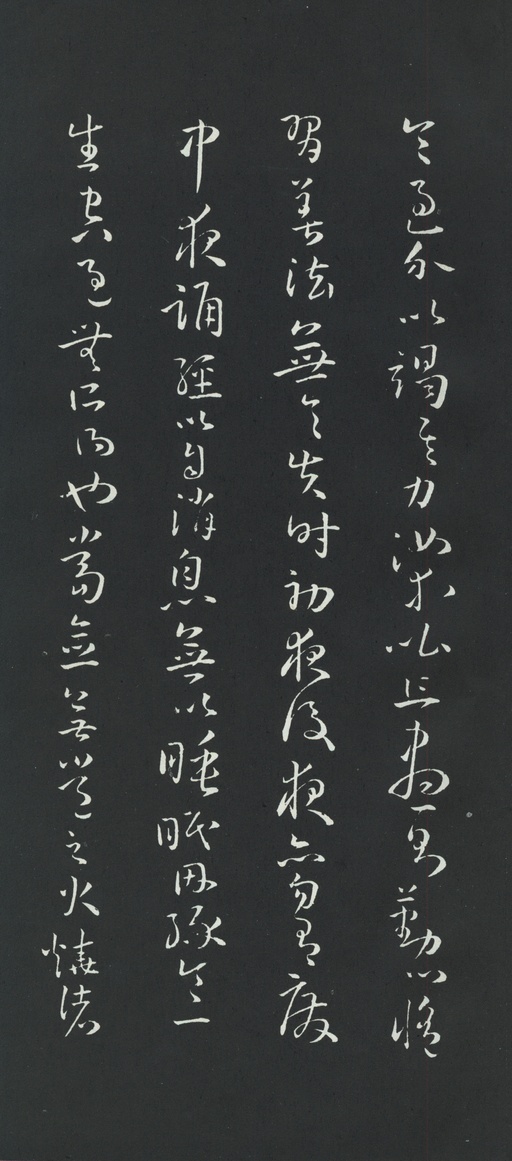 令過分以竭其力汝等比丘晝則勤心修
習善法無令失時初夜後夜亦勿有廢
中夜誦經以自消息無以睡眠因緣令一
生空過無所得也當念無常之火燒諸